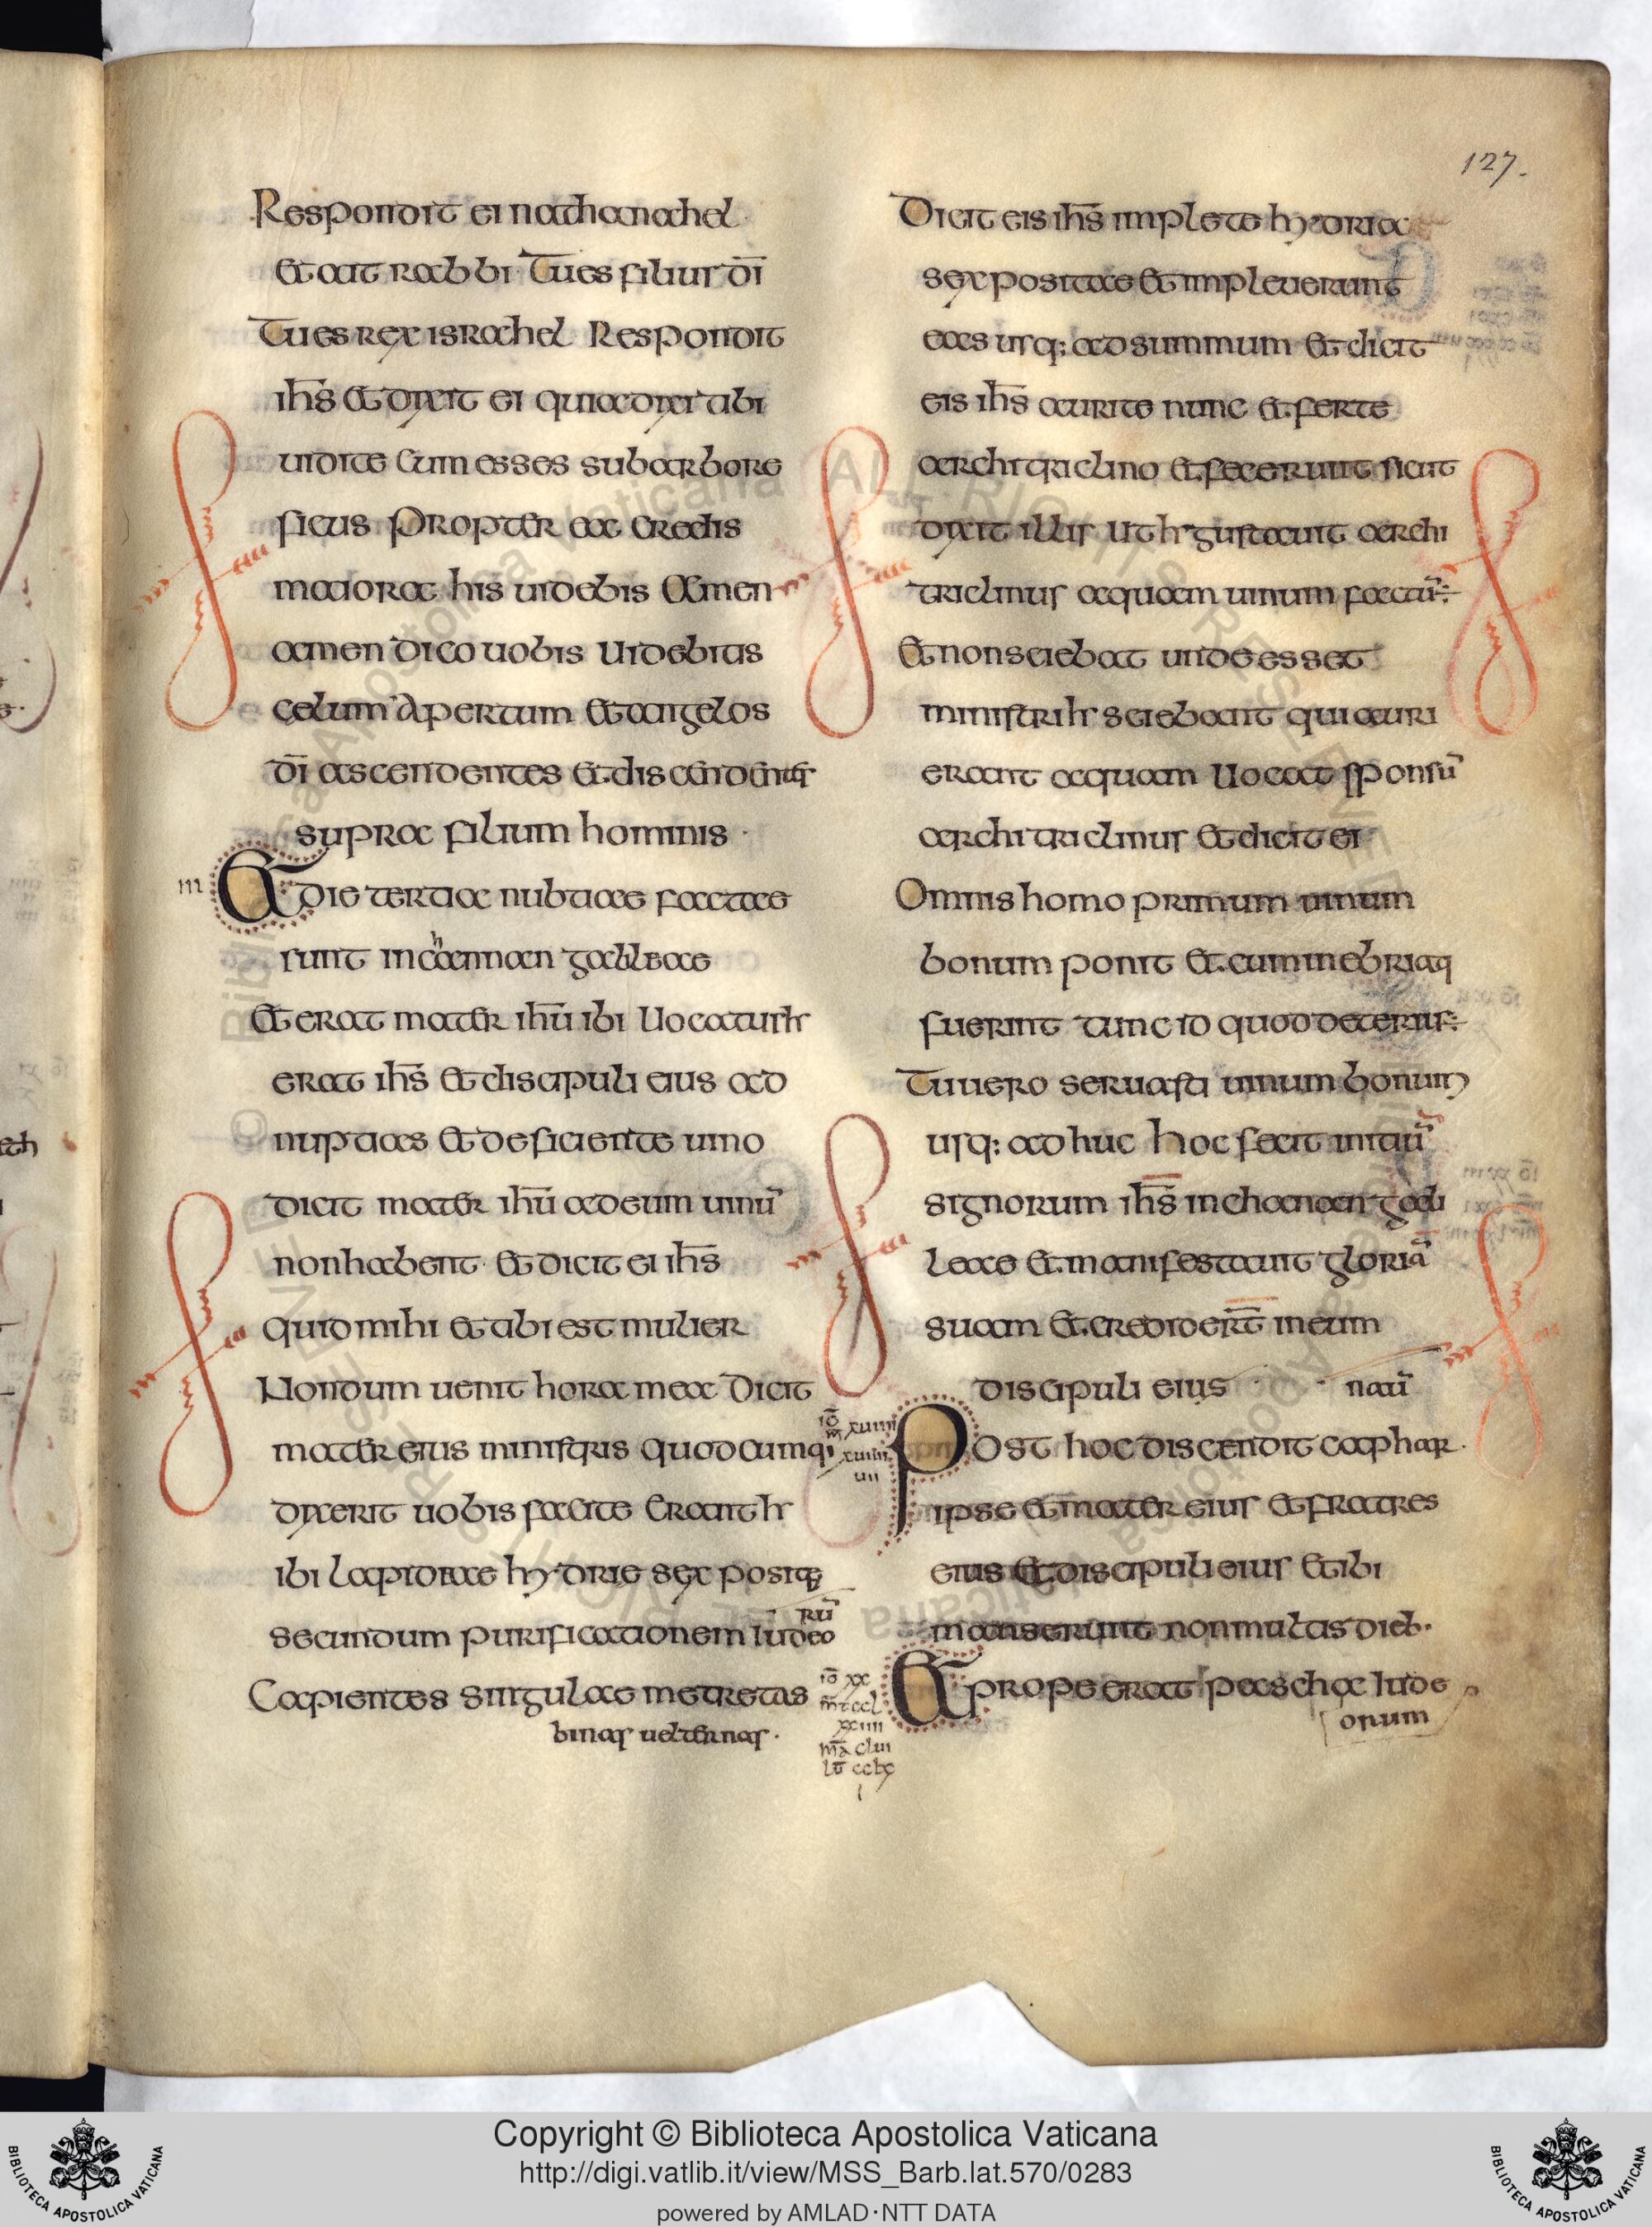 127.
Respondit ei nathanahel
et ait rabbi Tu es filius dī
Tu es rex israhel Respondit
ihs̄ et dixit ei quia dixi tibi
uidite Cum esses sub arbore
ficus Propter ea Credis
maiora his uidebis Amen
amen Dico uobis Uidebitis
çelum Apertum et angelos
dī ascendentes et discendentes
supra filium hominis ·
Et die tertia nubtiae factae
sunt in channan galileae
Et erat mater ihū ibi Uocatus
erat ihs̄ et discipuli eius ad
nuptias et deficiente uino
dicit mater ihū ad eum uinū
non habent · et dicit ei ihs̄
Quid mihi et tibi est mulier
Nondum uenit hora mea Dicit
mater eius ministris quodcumq;
dixerit uobis facite Erant
ibi lapideae hydrie sex positę
secundum purificationem iudeo
rū
Capientes singulae metretas
binas uel ternas ·
Dicit eis ihs̄ implete hydrias
sex positae et impleuerunt
eas usq; ad summum et dicit
eis ihs̄ aurite nunc et ferte
archi triclino et fecerunt sicut
dixit illis Ut gustauit archi
triclinus aquam uinum factū
Et non sciebat unde esset
ministri sciebant qui auri
erant aquam Uocat sponsū
archi triclinus et dicit ei
Omnis homo primum uinum
bonum ponit et cum inebriati
fuerint tunc id quod deterius
Tu uero seruasti uinum bonum
usq; ad huc hoc fecit initiū
signorum ihs̄ in chanan gali
leae et manifestauit gloriā
suam et crediderūt in eum
discipuli eius
naū
Post hoc discendit caphar
ipse et mater eius et fratres
eius et discipuli eius et ibi
manserunt non multis dieb·
Et prope erat pascha iude
orum
Copyright © Biblioteca Apostolica Vaticana
http://digi.vatlib.it/view/MSS_Barb.lat.570/0283
powered by AMLAD·NTT DATA
BIBLIOTECA APOSTOLICA VATICANA
BIBLIOTECA APOSTOLICA VATICANA